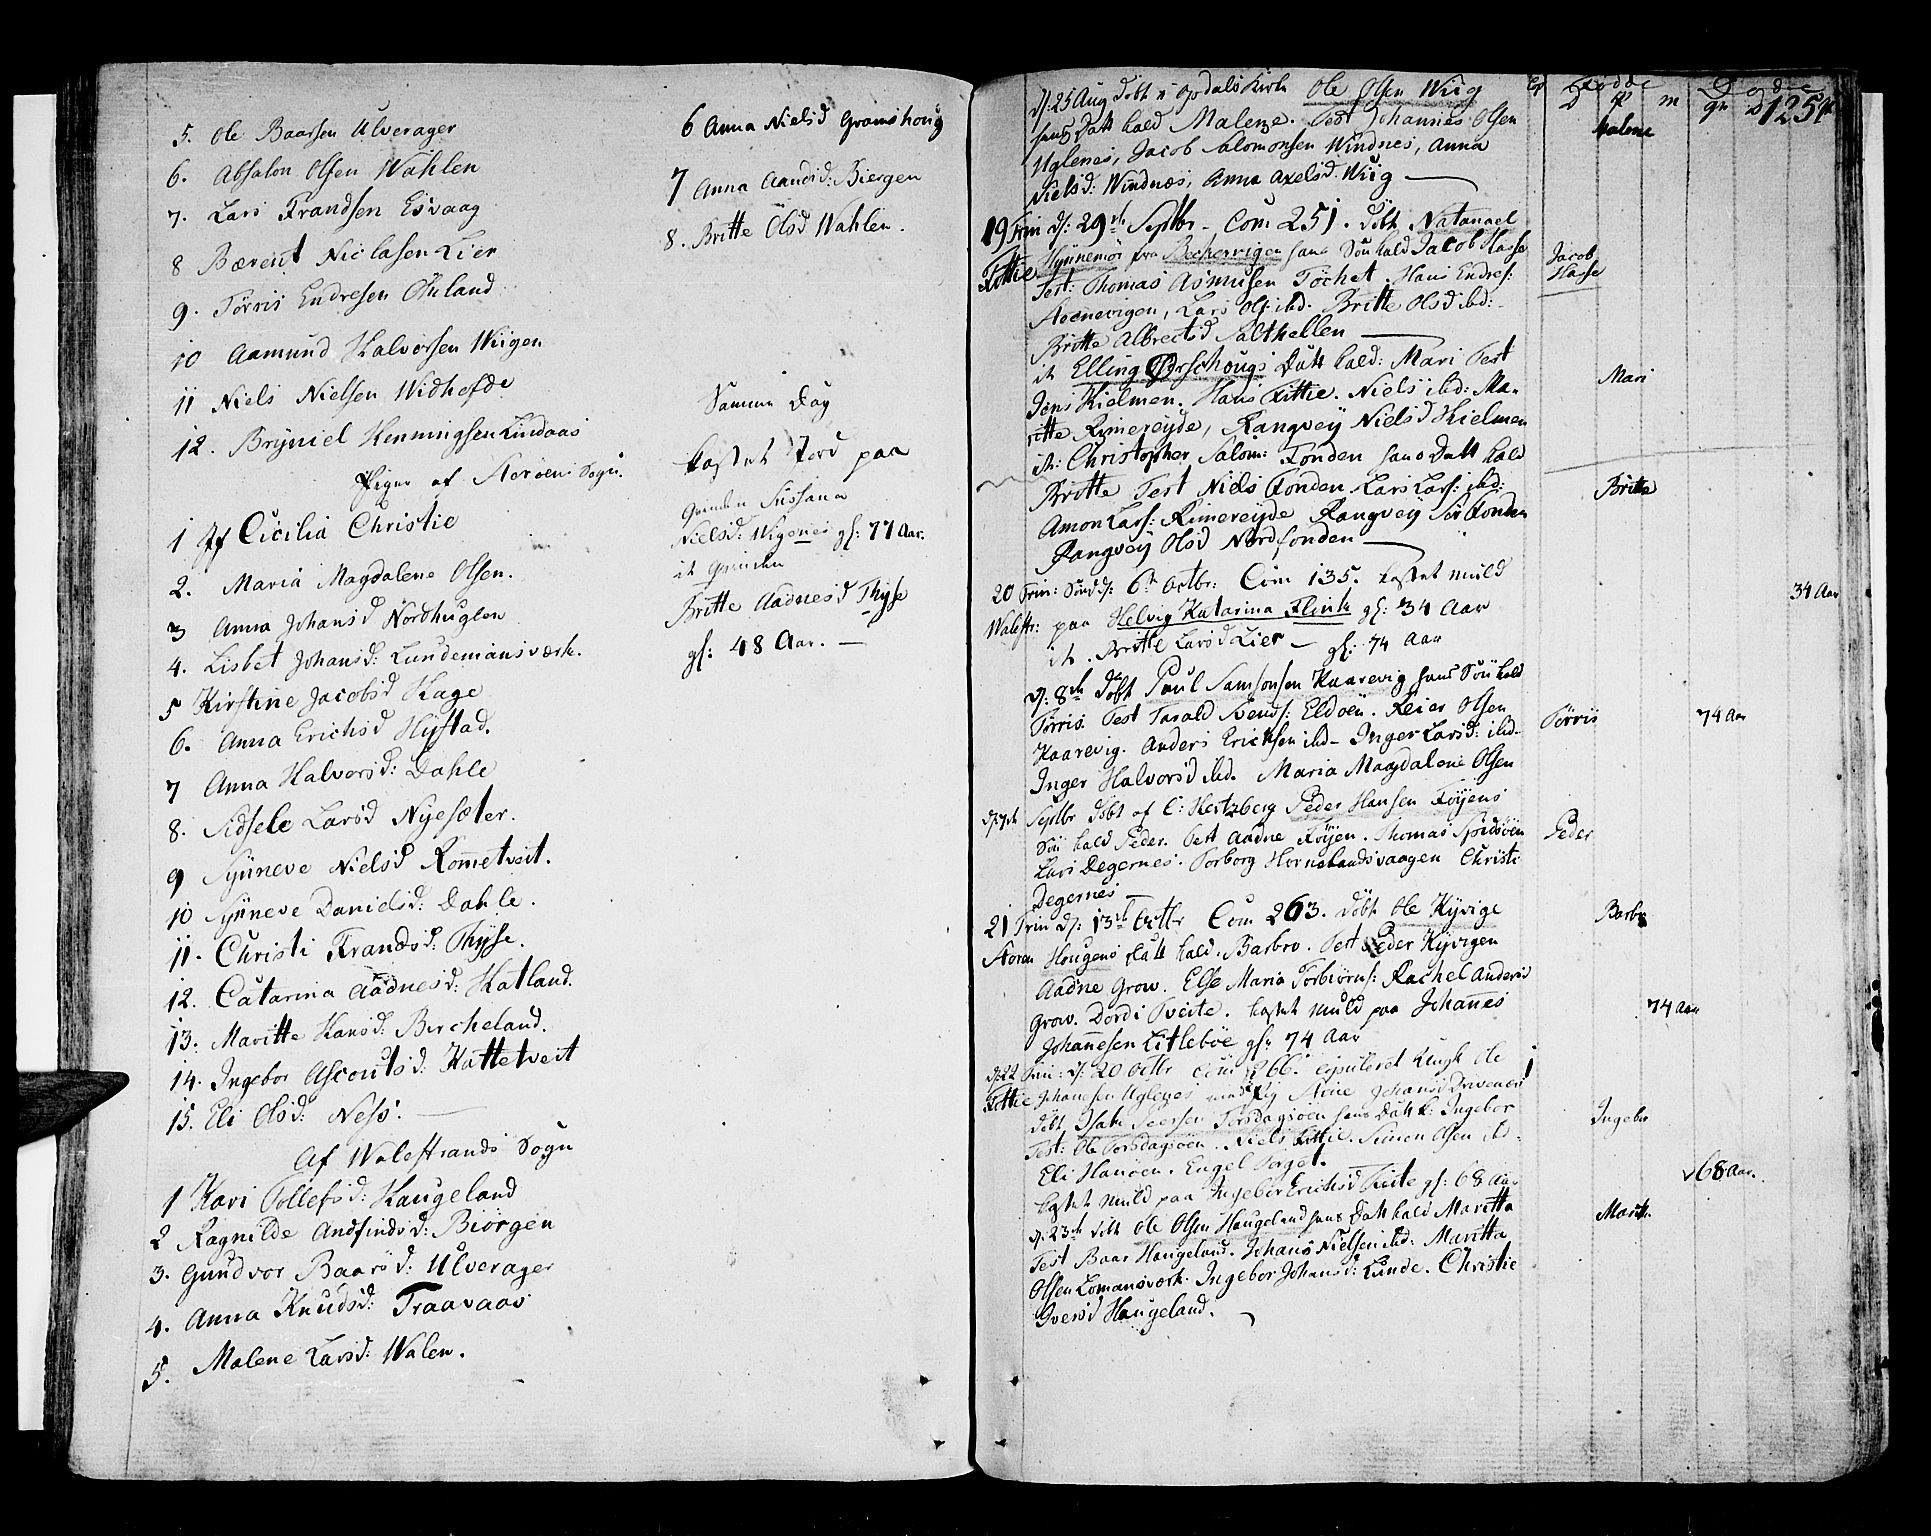 5. Ole Baarsen Ulverager
6. Absalon Olsen Wahlen
7. Lars Frandsen Eisvaag
8 Bærent Niclasen Lier
9. Tørris Endresen Øuland
10 Aamund Halvorsen Wiigen
11 Niels Nielsen Widhefde
12. Bryniel Henningsen Lindaas
Piger af Storøens Sogn.
1 Jf Cicilia Christie
2. Maria Magdalene Olsen.
3 Anna Johansd Nordhuglen
4. Lisbet Johansd: Lundemansværk.
5 Kirstine Jacobsd Hage
6. Anna Erichsd Hystad.
7 Anna Halvorsd: Dahle
8. Sidsele Larsd Nyesæter.
9 Synneve Nielsd Rometveit.
10 Synneve Danielsd: Dahle.
11. Christi Frandsd: Thyse.
12. Catarina Aadnesd: Hatland.
13. Maritte Hansd: Bircheland.
14. Ingebor Ascoutsd: Kattetveit
15. Eli Olsd: Ness.
Af Walestrands Sogn
1 Kari Tollefsd: Haugeland
2 Ragnilde Andfindsd: Biørgen
3. Gundvor Baarsd: Ulverager
4. Anna Knudsd: Traavaas
5. Malene Larsd: Walen.
6 Anna Nielsd Gramshoug
7 Anna Aamds d: Biergen
8. Britte Olsd Wahlen.
Samme Dag
kastet Jord paa
Qvinden Sussana
Nielsd: Wigenes gl: 77 Aar.
it Qvinden
Britte Aadnesd Thyse
gl: 48 Aar.
Fødde Døde
D P m qv D 125
d: 25 Aug døbt i Opdals Kirk Ole Olsen Wiig
hans Datt kald Malene. Test Johannes Olsen
Malene
Uglenes, Jacob Salomonsen Windnes, Anna
Nielsd: Windnæs, Anna Axelsd. Wiig
19 Trin d: 29de Septbr Com 251. døbt Natanael
Fittie Hynnemør fra Beckervigen hans Søn kald Jacob Hasse
Jacob Hasse
Test: Thomas Asmusen Tøchet. Hans Endres:
Steenevigen, Lars Ols: ibd. Britte Olsd ibd:
Britte Albrectsd Salthellen
it Elling Ørschougs Datt kald: Mari Test
Mari
Jens Kielmen. Hans Fittie. Niels ibd: Ma-
ritte Rimereyde, Rangvey Nielsd Kielmen
it: Christopher Salom: Fonden hans Datt kald
Britte Test Niels Fonden Lars Lars: ibd:
Britte
Amon Lars: Rimereyde Rangvey Sør Fonden
Rangvey Olsd Nordfonden
20 Trin: Sønd d: 6te Octbr: Com 135. kastet muld
Walestr: paa Helvig Katarina Flink gl: 34 Aar
34 Aar
it. Britte Larsd Lier gl: 74 Aar
d: 8de døbt Paul Samsonsen Kaarevig hans Søn kald
Tørris Test Tarald Svends: Eldøen. Reier Olsen
Tørris 74 Aar
Kaarevig. Anders Ericksen ibd- Inger Larsd: ibd-
Inger Halvorsd ibd. Maria Magdalene Olsen
Septbr døbt af C: Hertzberg Peder Hansen Føyens
Søn kald Peder. Test Aadne Føyen. Thomas Spidsøen
Peder
Lars Degernes. Torborg Hornelandsvaagen Christi
Degernes
21 Trin d: 13de Octbr Com 263. døbt Ole Kyvige
Barbro
Storøen Hougens Datt kald. Barbro. Test Peder Kyvigen
Aadne Grow. Else Maria Torbiørns: Rachel Anders
Grow. Dordi Tveite. kastet muld paa Johannes
74 Aar
Johannesen Litlebøe gl: 74 Aar
22 Trin: d: 20 Octbr Com 266. copuleret Ungk Ole
Fittie Johansen Uglenes med Pig Stine Johansd Drivenes
1
døbt Isak Seersen Torsdagsøen hans Datt k: Ingebor
Ingebor
Test: Ole Torsdagsøen. Niels Fittie. Simen Olsen ibd.
Eli Hanøen. Engel Torget.
kastet muld paa Ingebor Erichsd Tveite gl: 68 Aar
68 Aar.
d: 23de døbt Ole Olsen Haugeland hans Datt kald Maritta
Maritt.
Test Baar Haugeland. Johans Nielsen ibd: Maritta
Olsen Lomansværk. Ingebor Johansd: Lunde. Christie
Iversd Haugeland.